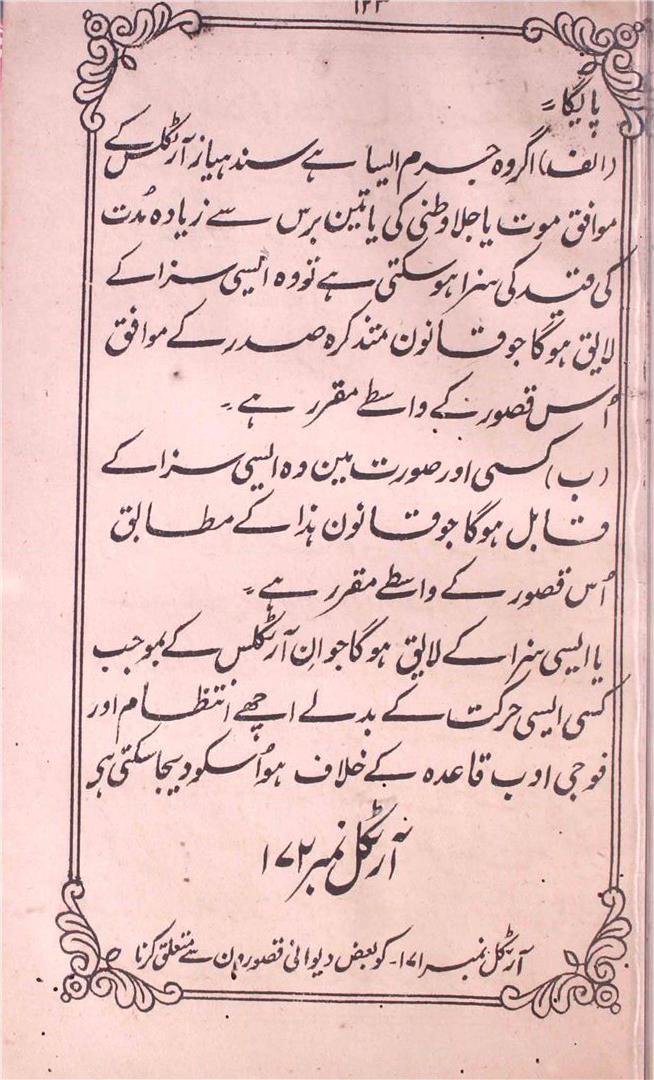 ۱۲۳
پائیگا =
(الف) اگر وہ جرم ایسا ہے سند ہیاز آرٹکلس کے
موافق موت یا جلاوطنی کی یا تین برس سے زیادہ مُدت
کی قید کی سزا ہو سکتی ہے تو وہ ایسی سزا کے
لایق ہوگا جو قانون متذکرہ صدر کے موافق
اُس قصور کے واسطے مقرر ہے ۔
(ب) کسی اور صورت مین وہ ایسی سزا کے
قابل ہوگا جو قانون ہذا کے مطابق
اُس قصور کے واسطے مقرر ہے ۔
یا ایسی سزا کے لایق ہوگا جو ان آرٹکلس کے بموجب
کسی ایسی حرکت کے بدلے اچھے انتظام اور
فوجی ادب قاعدہ کے خلاف ہو اُسکو دیجا سکتی ہی
آرٹکل نمبر ۱۷۲
آرٹکل نمبر ۱۷۱ - کو بعض دیوانی قصورون سے متعلق کرنا